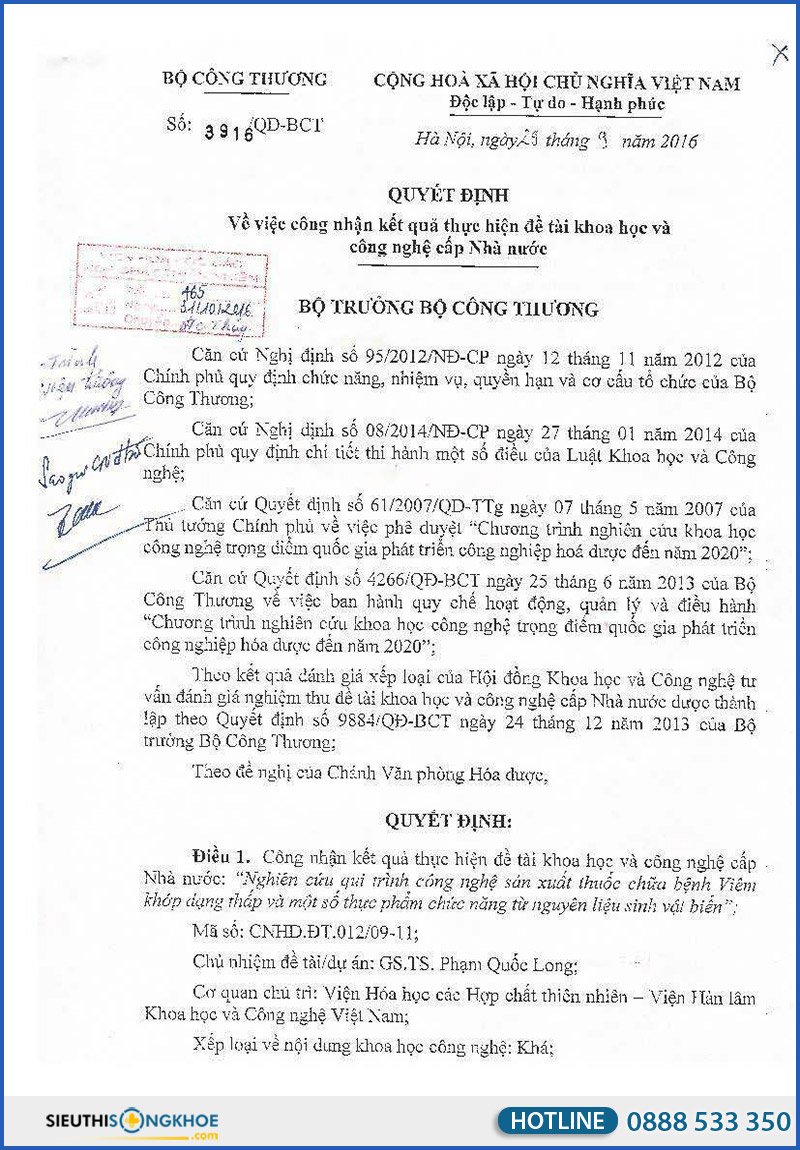 BỘ CÔNG THƯƠNG
CỘNG HOÀ XÃ HỘI CHỦ NGHĨA VIỆT NAM
Độc lập - Tự do - Hạnh phúc
Số: 3916/QĐ-BCT
Hà Nội, ngày 29 tháng 9 năm 2016
QUYẾT ĐỊNH
Về việc công nhận kết quả thực hiện đề tài khoa học và
công nghệ cấp Nhà nước
465
BỘ TRƯỞNG BỘ CÔNG THƯƠNG
Căn cứ Nghị định số 95/2012/NĐ-CP ngày 12 tháng 11 năm 2012 của
Chính phủ quy định chức năng, nhiệm vụ, quyền hạn và cơ cấu tổ chức của Bộ
Công Thương;
Căn cứ Nghị định số 08/2014/NĐ-CP ngày 27 tháng 01 năm 2014 của
Chính phủ quy định chi tiết thi hành một số điều của Luật Khoa học và Công
nghệ;
Căn cứ Quyết định số 61/2007/QĐ-TTg ngày 07 tháng 5 năm 2007 của
Thủ tướng Chính phủ về việc phê duyệt “Chương trình nghiên cứu khoa học
công nghệ trọng điểm quốc gia phát triển công nghiệp hoá dược đến năm 2020”;
Căn cứ Quyết định số 4266/QĐ-BCT ngày 25 tháng 6 năm 2013 của Bộ
Công Thương về việc ban hành quy chế hoạt động, quản lý và điều hành
“Chương trình nghiên cứu khoa học công nghệ trọng điểm quốc gia phát triển
công nghiệp hóa dược đến năm 2020”;
Theo kết quả đánh giá xếp loại của Hội đồng Khoa học và Công nghệ tư
vấn đánh giá nghiệm thu đề tài khoa học và công nghệ cấp Nhà nước được thành
lập theo Quyết định số 9884/QĐ-BCT ngày 24 tháng 12 năm 2013 của Bộ
trưởng Bộ Công Thương;
Theo đề nghị của Chánh Văn phòng Hóa dược,
QUYẾT ĐỊNH:
Điều 1. Công nhận kết quả thực hiện đề tài khoa học và công nghệ cấp
Nhà nước: “Nghiên cứu qui trình công nghệ sản xuất thuốc chữa bệnh Viêm
khớp dạng thấp và một số thực phẩm chức năng từ nguyên liệu sinh vật biển”;
Mã số: CNHD.ĐT.012/09-11;
Chủ nhiệm đề tài/dự án: GS.TS. Phạm Quốc Long;
Cơ quan chủ trì: Viện Hóa học các Hợp chất thiên nhiên – Viện Hàn lâm
Khoa học và Công nghệ Việt Nam;
Xếp loại về nội dung khoa học công nghệ: Khá;
SIEUTHISONGKHOE
.com
HOTLINE 0888 533 350